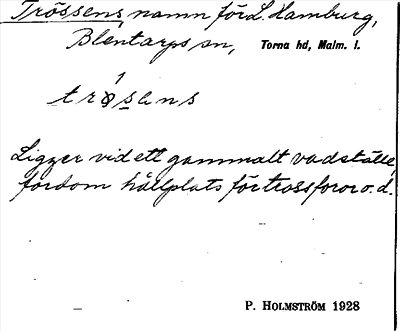 Trössens, namn för L. Hamburg,
Blentarps sn, Torna hd, Malm. l.
Ligger vid ett gammalt vadställe,
fordom hållplats för trossforor o. d.
P. HOLMSTRÖM 1928